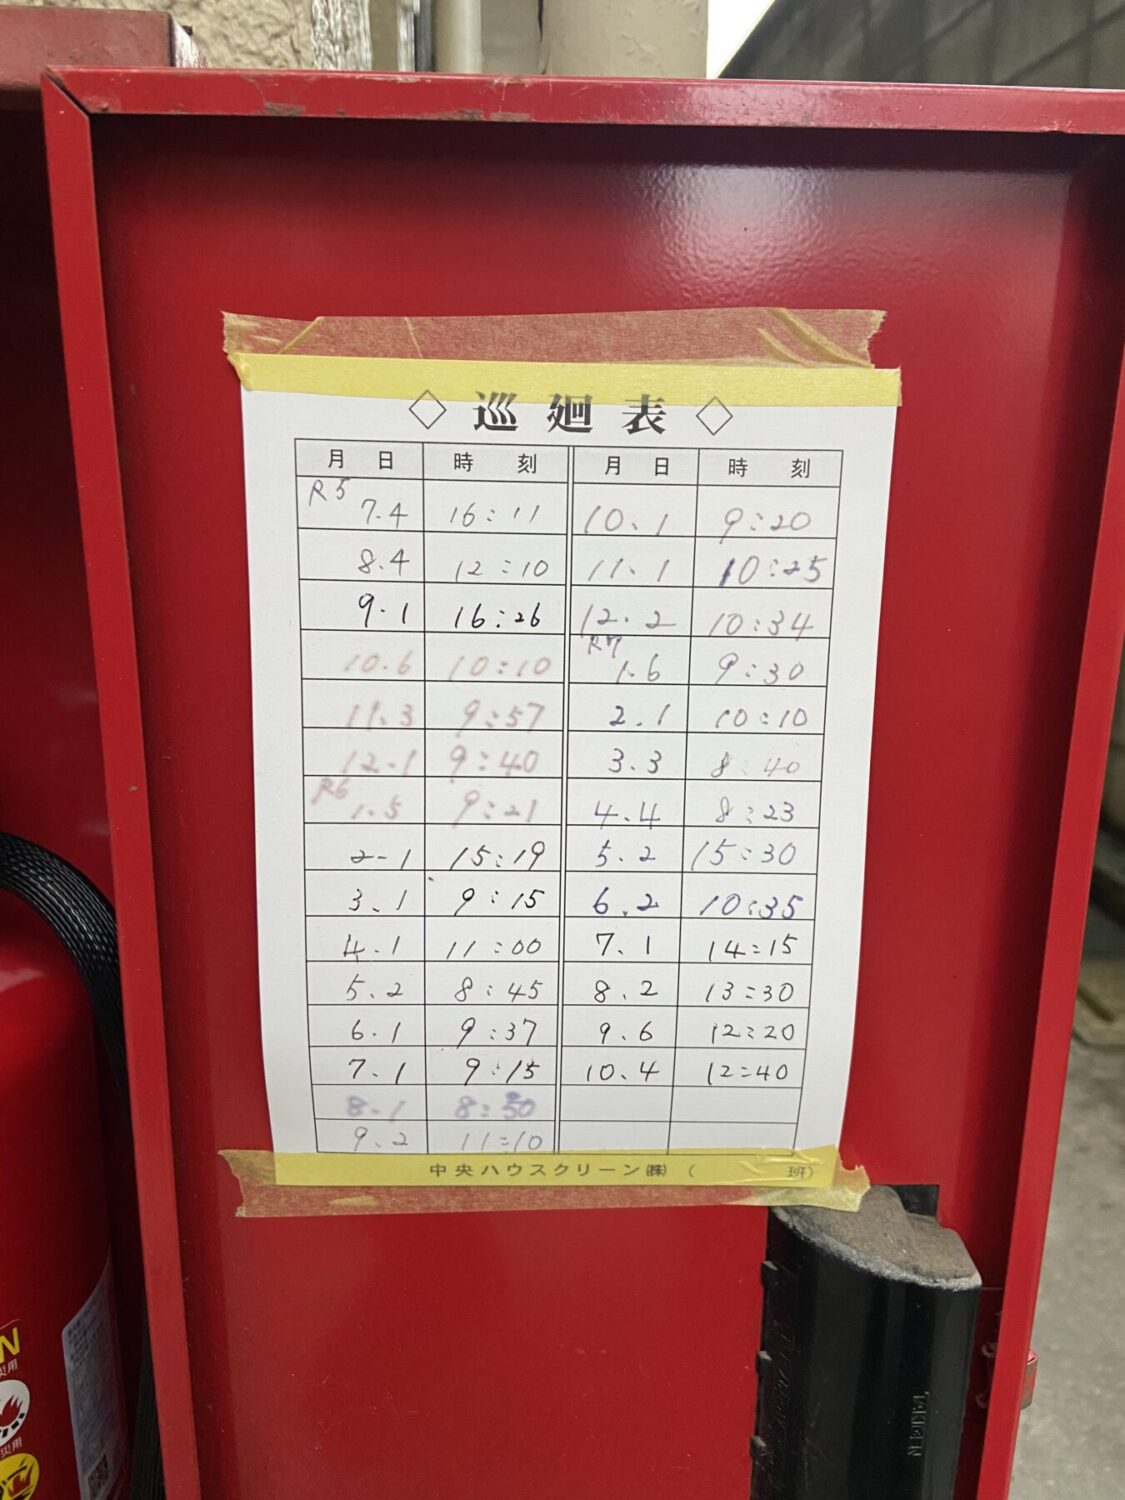 ◇ 巡廻表 ◇
月 日 時 刻 月 日 時 刻
R5 7.4 16:11 10.1 9:20
8.4 12:10 11.1 10:25
9.1 16:26 12.2 10:34
10.6 10:10 R7 1.6 9:30
11.3 9:57 2.1 10:10
12.1 9:40 3.3 8:40
R6 1.5 9:21 4.4 8:23
2-1 15:19 5.2 15:30
3.1 9:15 6.2 10:35
4.1 11:00 7.1 14:15
5.2 8:45 8.2 13:30
6.1 9:37 9.6 12:20
7.1 9:15 10.4 12:40
8.1 8:50
9.2 11:10
中央ハウスクリーン㈱ ( 班)
N
災用
災用
TAKIGEN